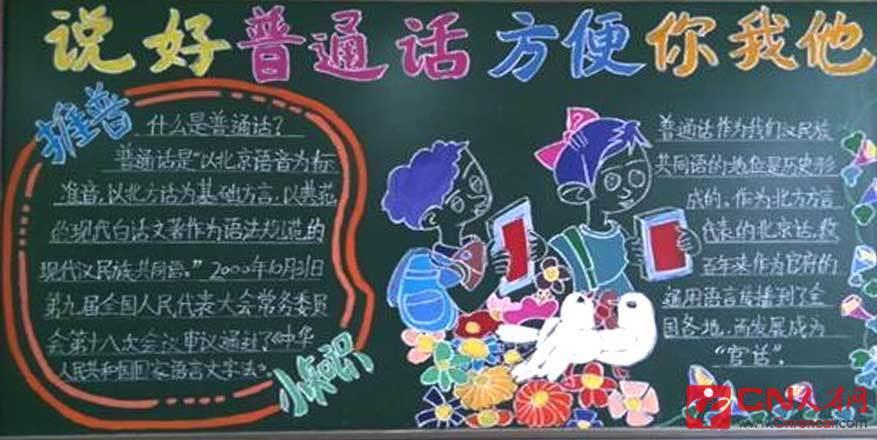 说好普通话 方便你我他
推普
什么是普通话？
普通话是“以北京语音为标
准音，以北方话为基础方言，以典范
的现代白话文著作为语法规范的
现代汉民族共同语。”2000年10月31日
第九届全国人民代表大会常务委员
会第十八次会议审议通过了《中华
人民共和国国家语言文字法》。
小知识
普通话作为我们汉民族
共同语的地位是历史形
成的。作为北方方言
代表的北京话，数
百年来作为官府的
通用语言传播到了全
国各地，而发展成为
“官话”。
CN人才网
www.cnrencai.com